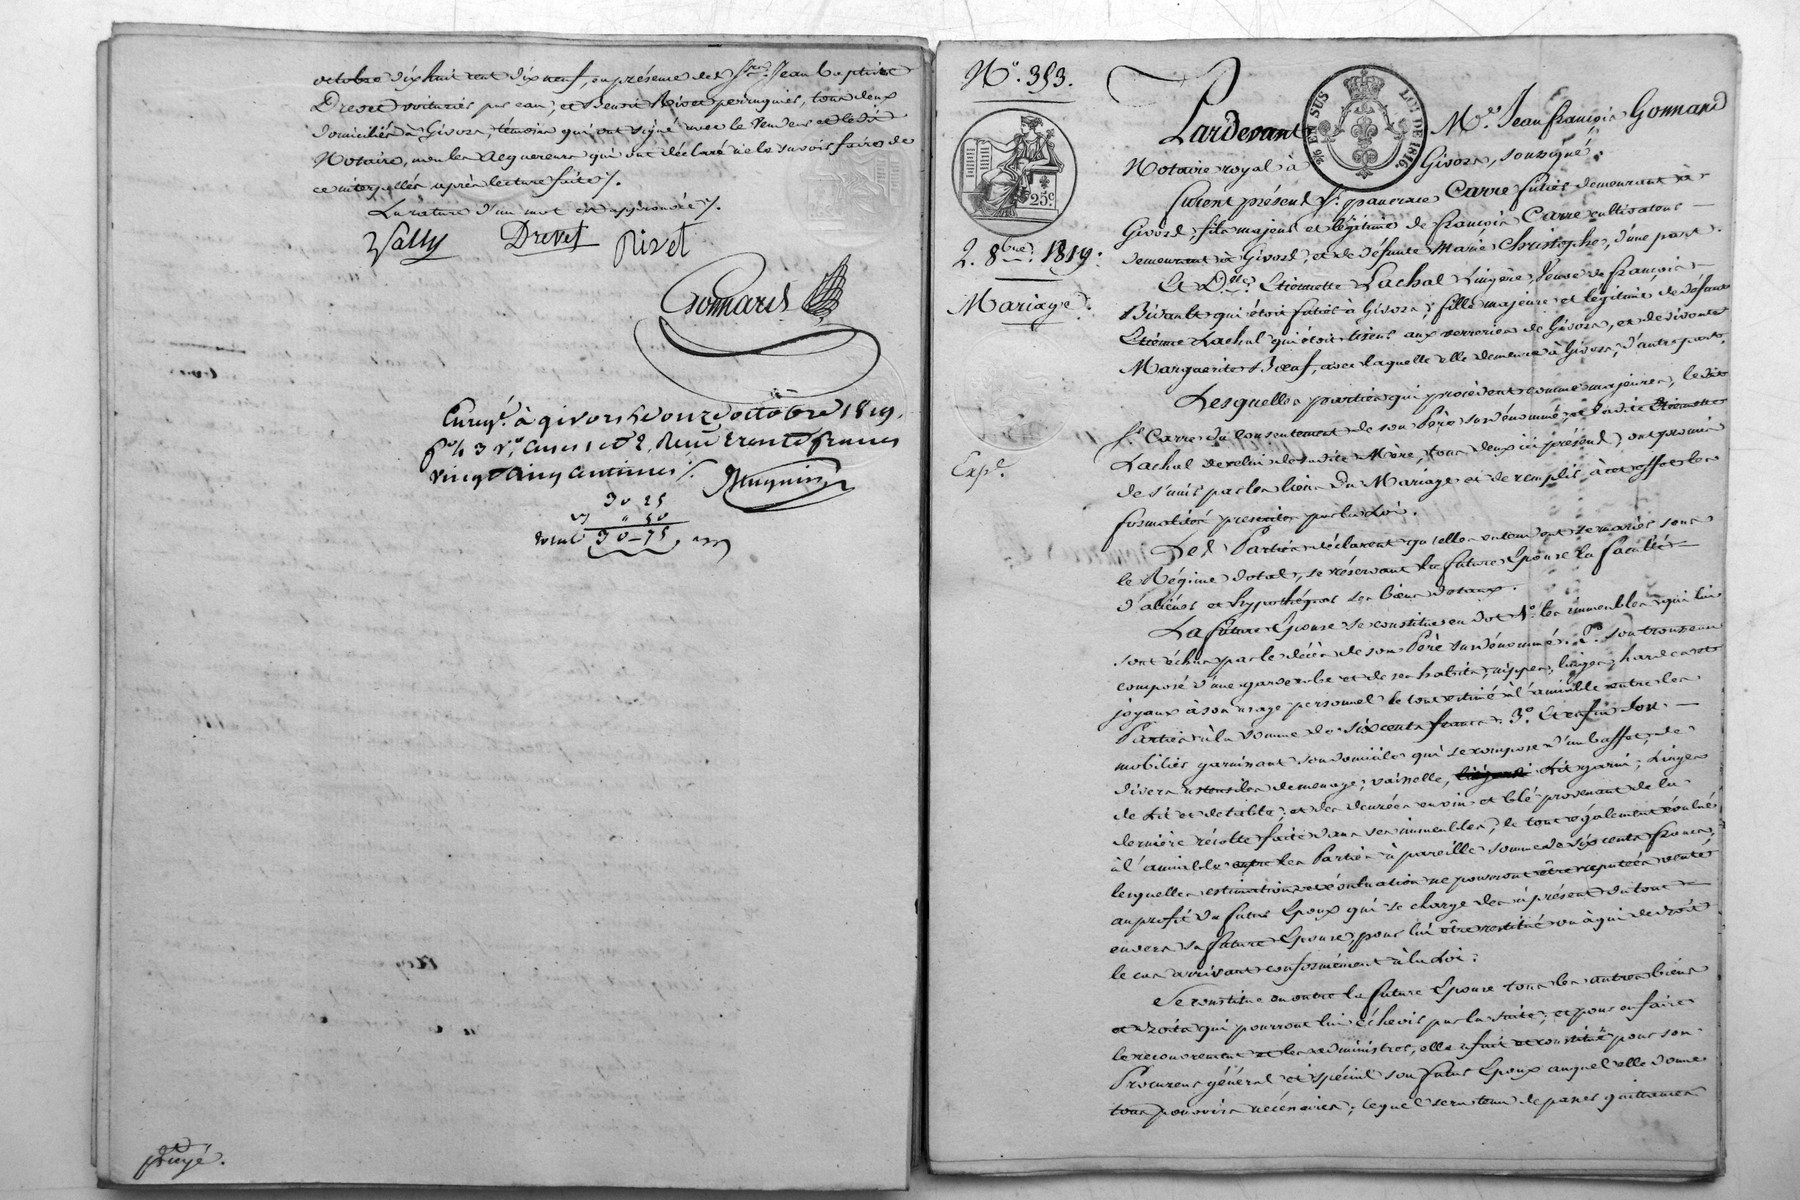 octobre dix huit cent dix neuf, en présence de Srs Jean Baptiste
Drevet voiturier par eau, et Benoit Rivet perruquier, tous deux
domiciliés à Givors, témoins qui ont signé avec le vendeur et ledit
Notaire, non les acquereurs qui ont déclaré ne le savoir faire de
ce interpellés après lecture faite ./.
La rature d'un mot est approuvée ./.
Vally Drevet Rivet
Gonnard
Enregt. à givors le onze octobre 1819,
fo 43 Vo, Cases 1 et 2, Reçu trente francs
vingt cinq centimes ./.
30 25
" 50
total 30-75
payé.
No. 353.
25c.
2. 8bre. 1819.
Mariage.
Expé.
96 ET SUS LOI DE 1816.
Pardevant Me. Jean françois Gonnard
Notaire royal à Givors, soussigné.
furent présens Sr. pancrace Carre futier demeurant à
Givors, fils majeur et légitime de françois Carre cultivateur
demeurant à Givors, et de défunte Marie Christophe, d'une part.
Et Dme. Etiennette Lachal Lingère, Veuve de françois
Bivante qui étoit futier à Givors; fille majeure et légitime de défunt
Etienne Lachal qui étoit tiseur aux verreries de Givors, et de vivante
Marguerite Bœuf, avec laquelle elle demeure à Givors, d'autre part.
Lesquelles parties qui procèdent comme majeures, ledit
Sr. Carre du consentement de son Père susdénommé, et ladite Etiennette
Lachal de celui de sadite Mère, tous deux ici présens, ont promis
de s'unir par les liens du Mariage et de remplir à cet effet les
formalités prescrites par la Loi.
Les Parties déclarent qu'elles entendent se marier sous
le Régime dotal, se réservant la future Epouse la faculté
d'aliéner et hypothéquer ses biens dotaux.
La future Epouse se constitue en dot 1o. les immeubles qui lui
sont échus par le décès de son Père susdénommé. 2o. son trousseau
composé d'une garderobe et de ses habits, nippes, linges, hardes et
joyaux à son usage personnel le tout estimé à l'amiable entre les
Parties à la somme de six cents francs. 3o. Et enfin son
mobilier garnissant son domicile qui se compose d'un buffet, de
divers ustensiles de menage; vaisselle, Lit garni; Linges
de Lit et de table; et des denrées en vin et blé provenant de la
dernière récolte faite dans ses immeubles, le tout également évalué
à l'amiable entre les Parties à pareille somme de six cents francs;
lesquelles estimation et évaluation ne pourront être réputées vente
au profit du futur Epoux qui se charge dès à présent du tout
envers sa future Epouse, pour lui être restitué ou à qui de droit
le cas arrivant conformément à la Loi.
Se constitue en outre la future Epouse tous les autres biens
et droits qui pourront lui échevir par la suite; et pour en faire
le recouvrement et les administrer, elle a fait et constitué pour son
Procureur général et spécial son futur Epoux auquel elle donne
tous pouvoirs nécessaires; lequel sera tenu de passer quittances